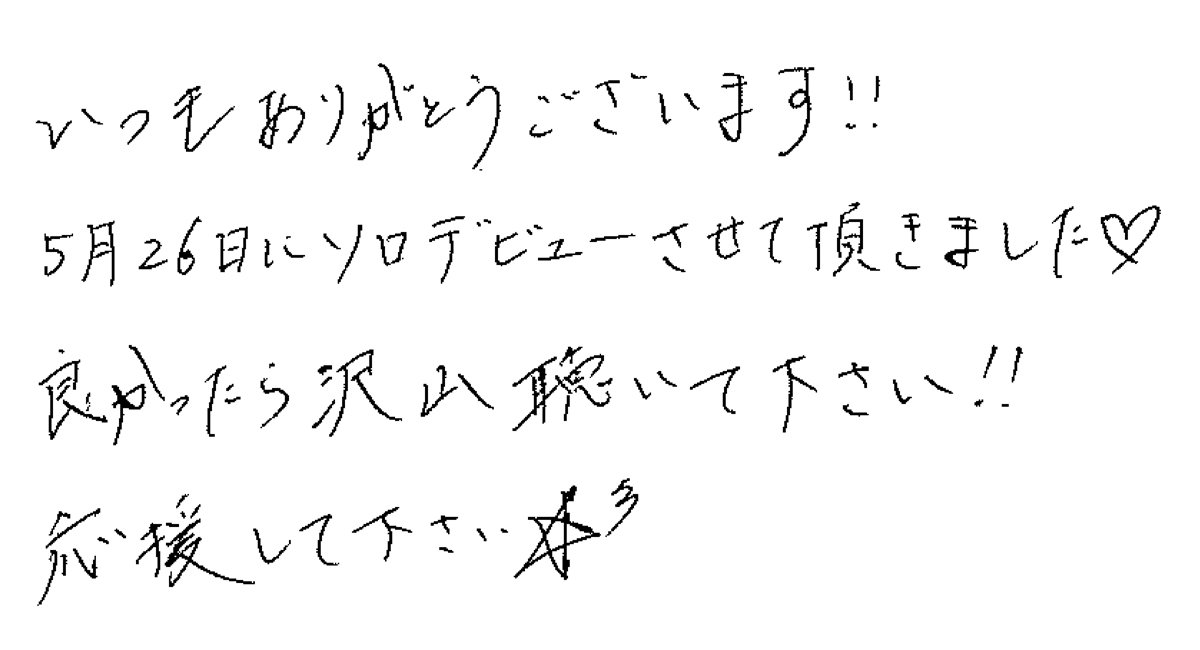 いつもありがとうございます!!
5月26日にソロデビューさせて頂きました♡
良かったら沢山聴いて下さい!!
応援して下さい☆彡